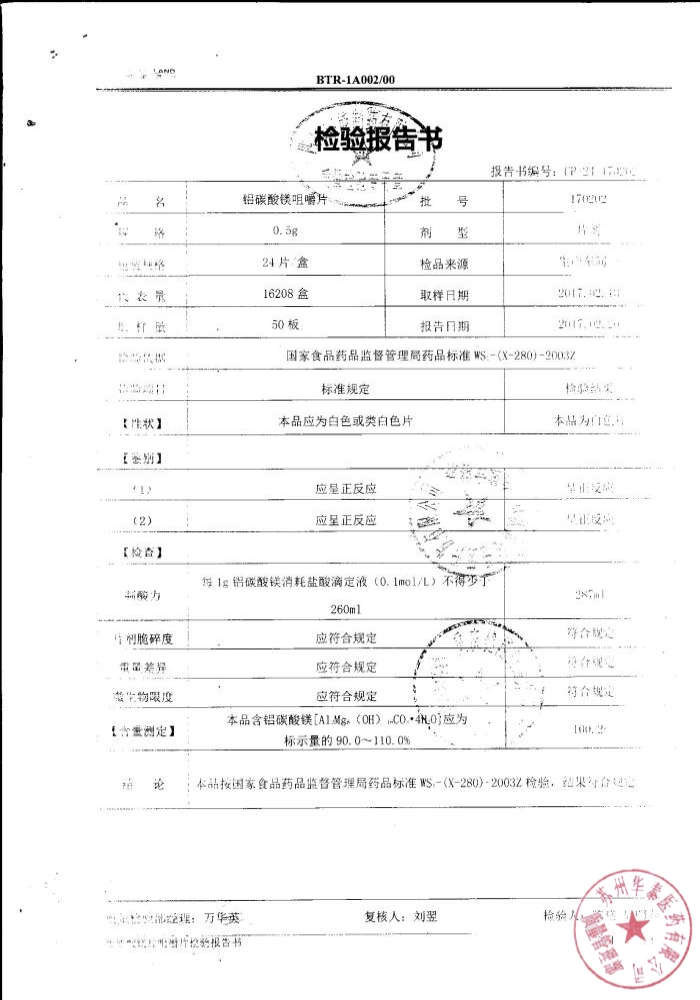 LAND
BTR-1A002/00
检验报告书
报告书编号：
品 名 铝碳酸镁咀嚼片 批 号 170202
规 格 0.5g 剂 型 片剂
包装规格 24片/盒 检品来源
代表量 16208盒 取样日期 2017.02.
50板 报告日期 2017.02.20
检验依据 国家食品药品监督管理局药品标准 WS₁-(X-280)-2003Z
检验项目 标准规定 检验结果
【性状】 本品应为白色或类白色片 本品为白色片
【鉴别】
（1） 应呈正反应 呈正反应
（2） 应呈正反应 呈正反应
【检查】
制酸力 每1g铝碳酸镁消耗盐酸滴定液（0.1mol/L）不得少于 287ml
260ml
片剂脆碎度 应符合规定 符合规定
重量差异 应符合规定 符合规定
微生物限度 应符合规定 符合规定
【含量测定】 本品含铝碳酸镁[Al₂Mg₆（OH）₁₆CO₃•4H₂O]应为 100.2
标示量的90.0～110.0%
结 论 本品按国家食品药品监督管理局药品标准 WS₁-(X-280)-2003Z 检验，结果符合规定
经理：万华英 复核人：刘翌 检验人：
咀嚼片检验报告书
苏州华泰医药有限公司